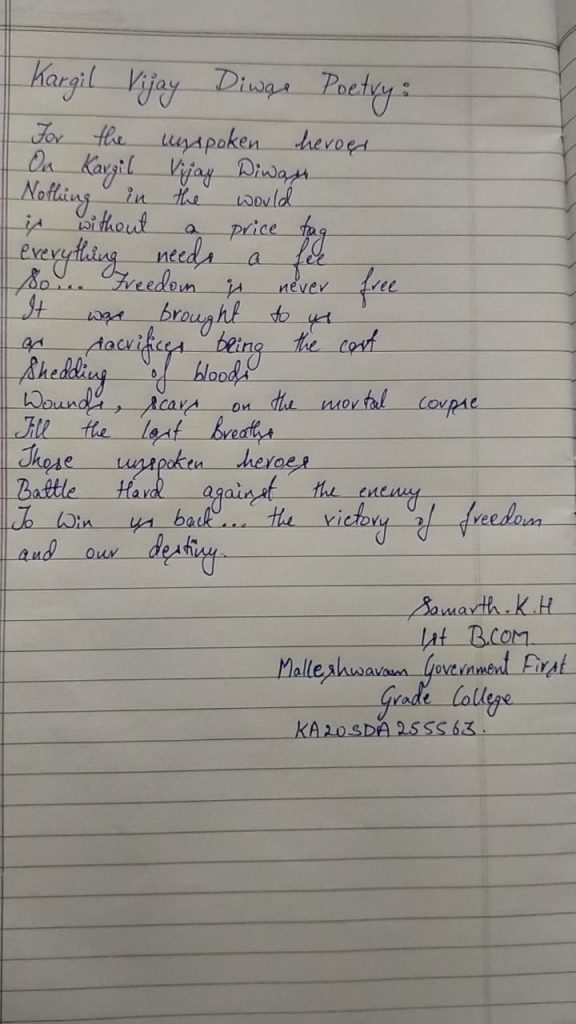 Kargil Vijay Diwas Poetry:
For the unspoken heroes
On Kargil Vijay Diwas
Nothing in the world
is without a price tag
everything needs a fee
So... Freedom is never free
It was brought to us
as sacrifices being the cost
Shedding of bloods
Wounds, scars on the mortal corpse
Till the last Breaths
Those unspoken heroes
Battle Hard against the enemy
To Win us back... the victory of freedom
and our destiny.
Samarth.K.H
1st B.COM
Malleshwaram Government First
Grade College
KA20SDA255563.